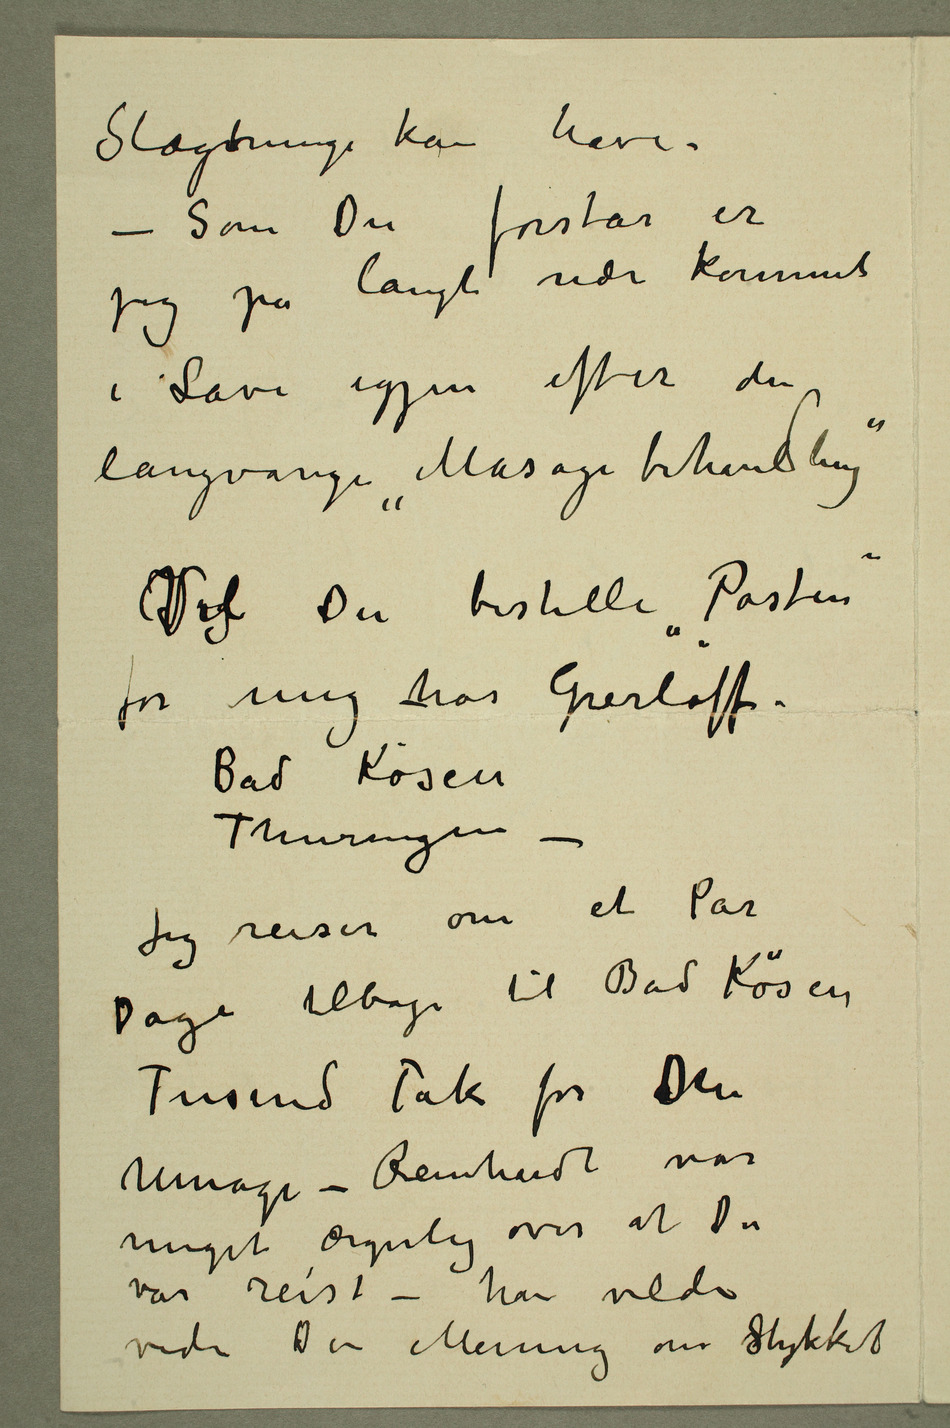 Slægtninge kan have.
– Som Du forstår er
jeg på langt nær kommet
i Lave igjen efter den
langvarige „Masagebehandling“
Vil Du bestille „Posten“
for mig hos Grerløff.
Bad Kösen
Thuringen –
Jeg reiser om et Par
Dage tilbage til Bad Kösen
Tusend Tak for Din
Umage – Reinhardt var
meget ærgerlig over at Du
var reist – han vilde
vide Din Mening om Stykket